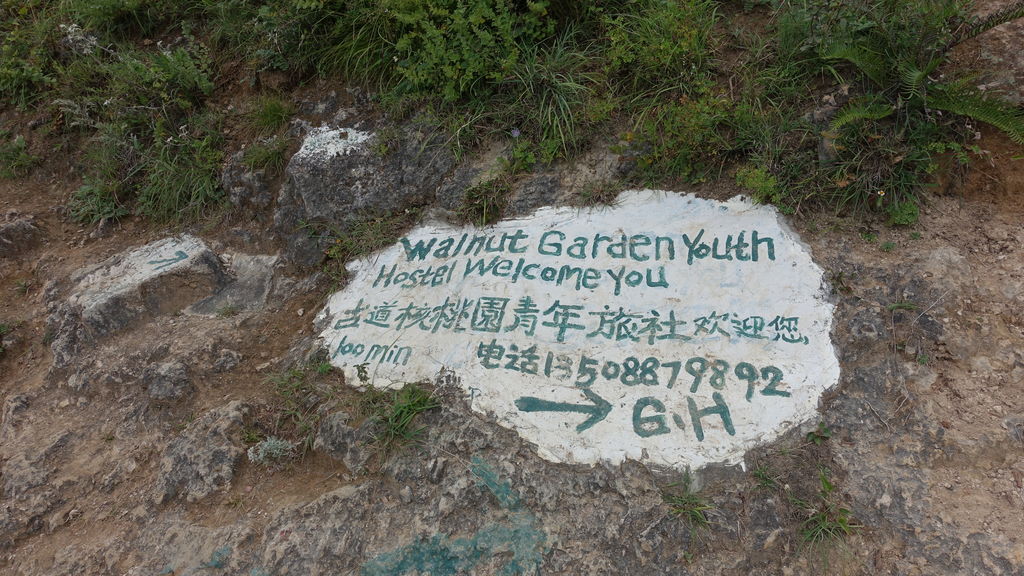 Walnut Garden Youth
Hostel Welcome You
古道核桃園青年旅社欢迎您
100 min 电话13508879892
→ G.H